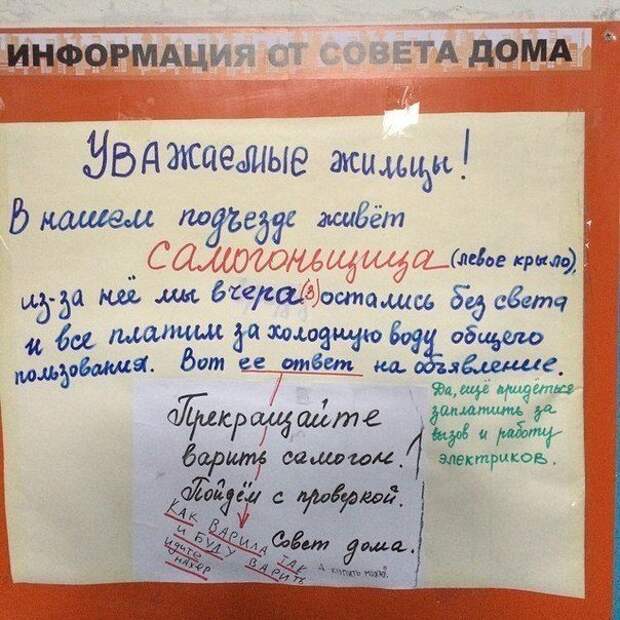 ИНФОРМАЦИЯ ОТ СОВЕТА ДОМА
Уважаемые жильцы!
В нашем подъезде живёт
самогоньщица (левое крыло),
из-за неё мы вчера (3) остались без света
и все платим за холодную воду общего
пользования. Вот ее ответ на объявление.
Да, ещё придёться
заплатить за
вызов и работу
электриков.
Прекращайте
варить самогон.
Пойдём с проверкой.
Совет дома.
КАК ВАРИЛА ТАК
И БУДУ ВАРИТЬ
идите
нахер
А КУПИТЬ МОЖНО?